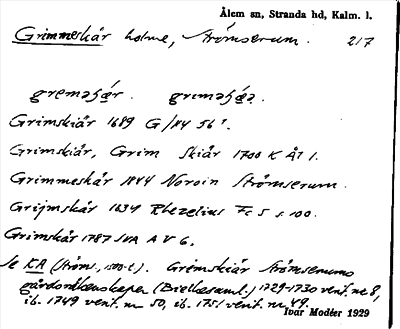 Ålem sn, Stranda hd, Kalm. l.
Grimmeskär holme, Strömserum. 217
Grimskiär 1689 G/44 56¹.
Grimskiär, Grim Skiär 1700 K Ål 1.
Grimmeskär 1844 Noroin Strömserum.
Grijmskär 1634 Rhezelius Fc 5 s. 100.
Grimskär 1787 SVA A V 6.
Se KA (Ströms., 1500-t.). Grimskiär Strömserums
gårdsräkenskaper (Bielkesaml.) 1729-1730 vent. nr 8,
ib. 1749 vent. nr 50, ib. 1751 vent. nr 49.
Ivar Modéer 1929